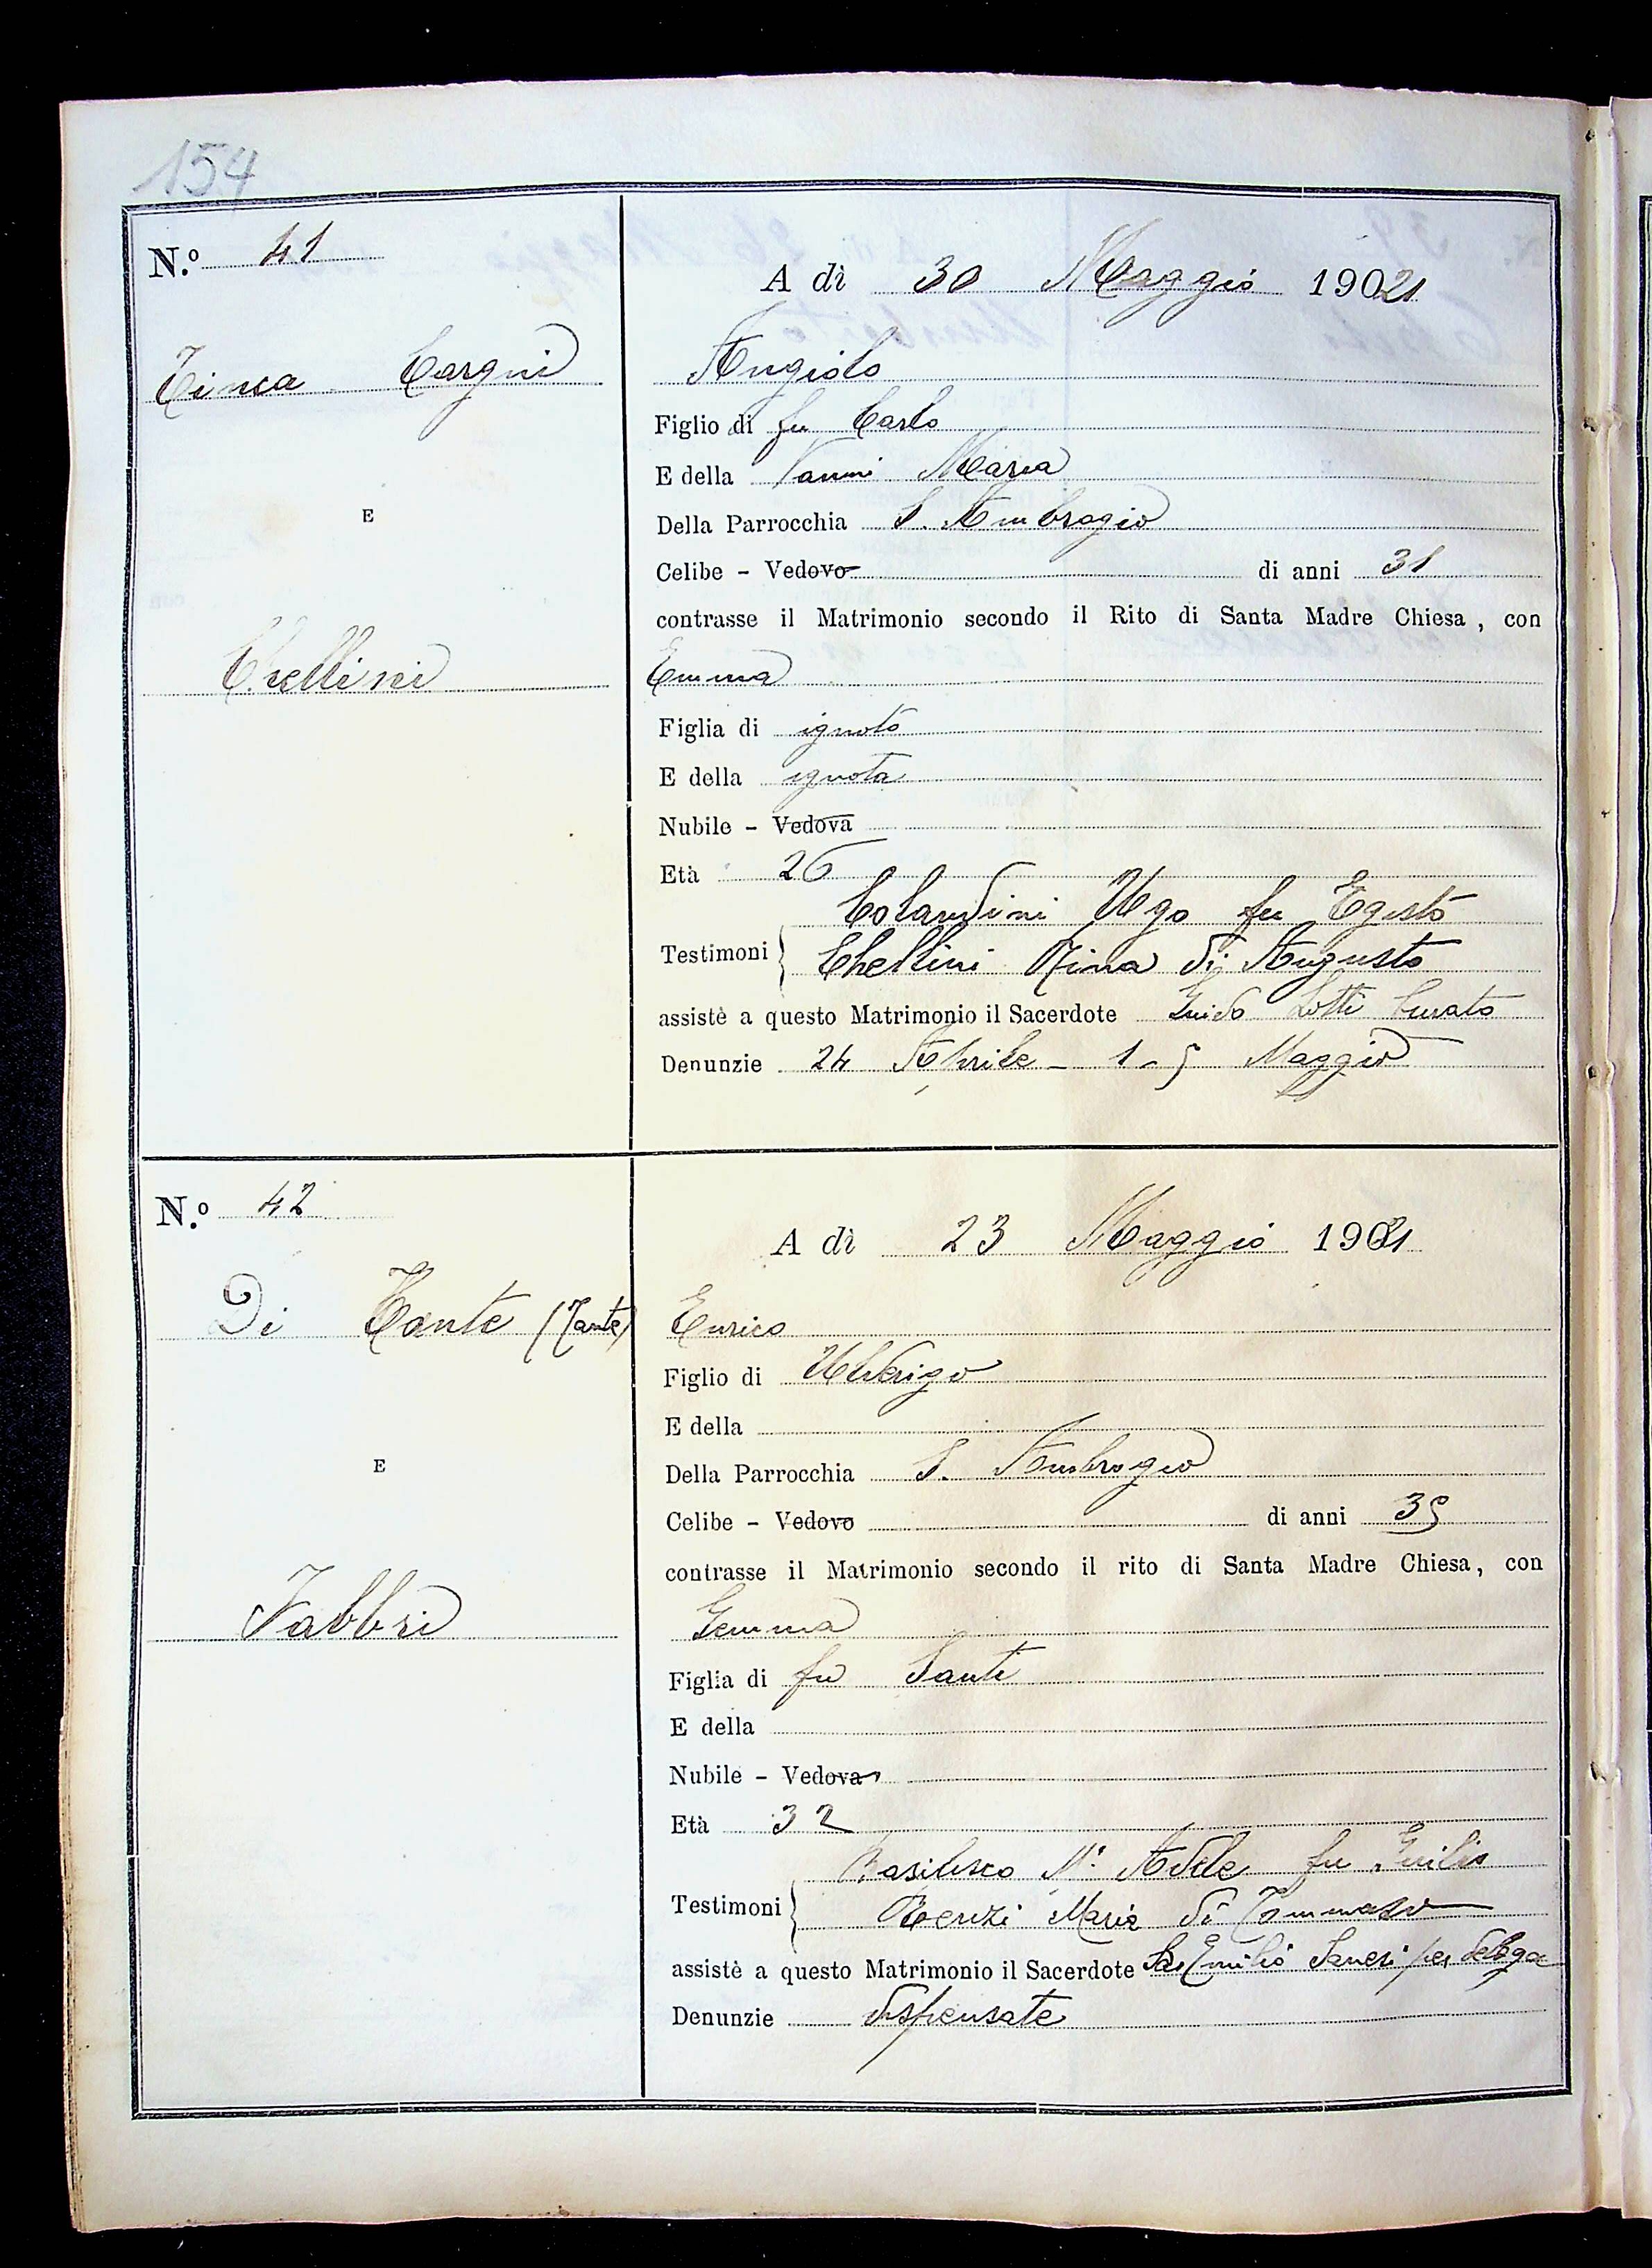 154
N.º 41
A dì 30 Maggio 1921
Tinca Cargni
Angiolo
Figlio di fu Carlo
E della Vanni Maria
E
Della Parrocchia S. Ambrogio
Celibe - Vedovo di anni 31
contrasse il Matrimonio secondo il Rito di Santa Madre Chiesa, con
Chellini
Emma
Figlia di ignoto
E della ignota
Nubile - Vedova
Età 26
Colandini Ugo fu Egisto
Testimoni Chellini Nina di Augusto
assistè a questo Matrimonio il Sacerdote Guido Lotti Curato
Denunzie 24 Aprile - 1 - 5 Maggio
N.º 42
A dì 23 Maggio 1921
Di Tante (Tante)
Enrico
Figlio di Ulderigo
E della
E
Della Parrocchia S. Ambrogio
Celibe - Vedovo di anni 35
contrasse il Matrimonio secondo il rito di Santa Madre Chiesa, con
Fabbri
Gemma
Figlia di fu Santi
E della
Nubile - Vedova
Età 32
Basilisco M.ª Adele fu Giulio
Testimoni Renzi Maria di Tommaso
assistè a questo Matrimonio il Sacerdote Emilio Saneri per delega
Denunzie dispensate